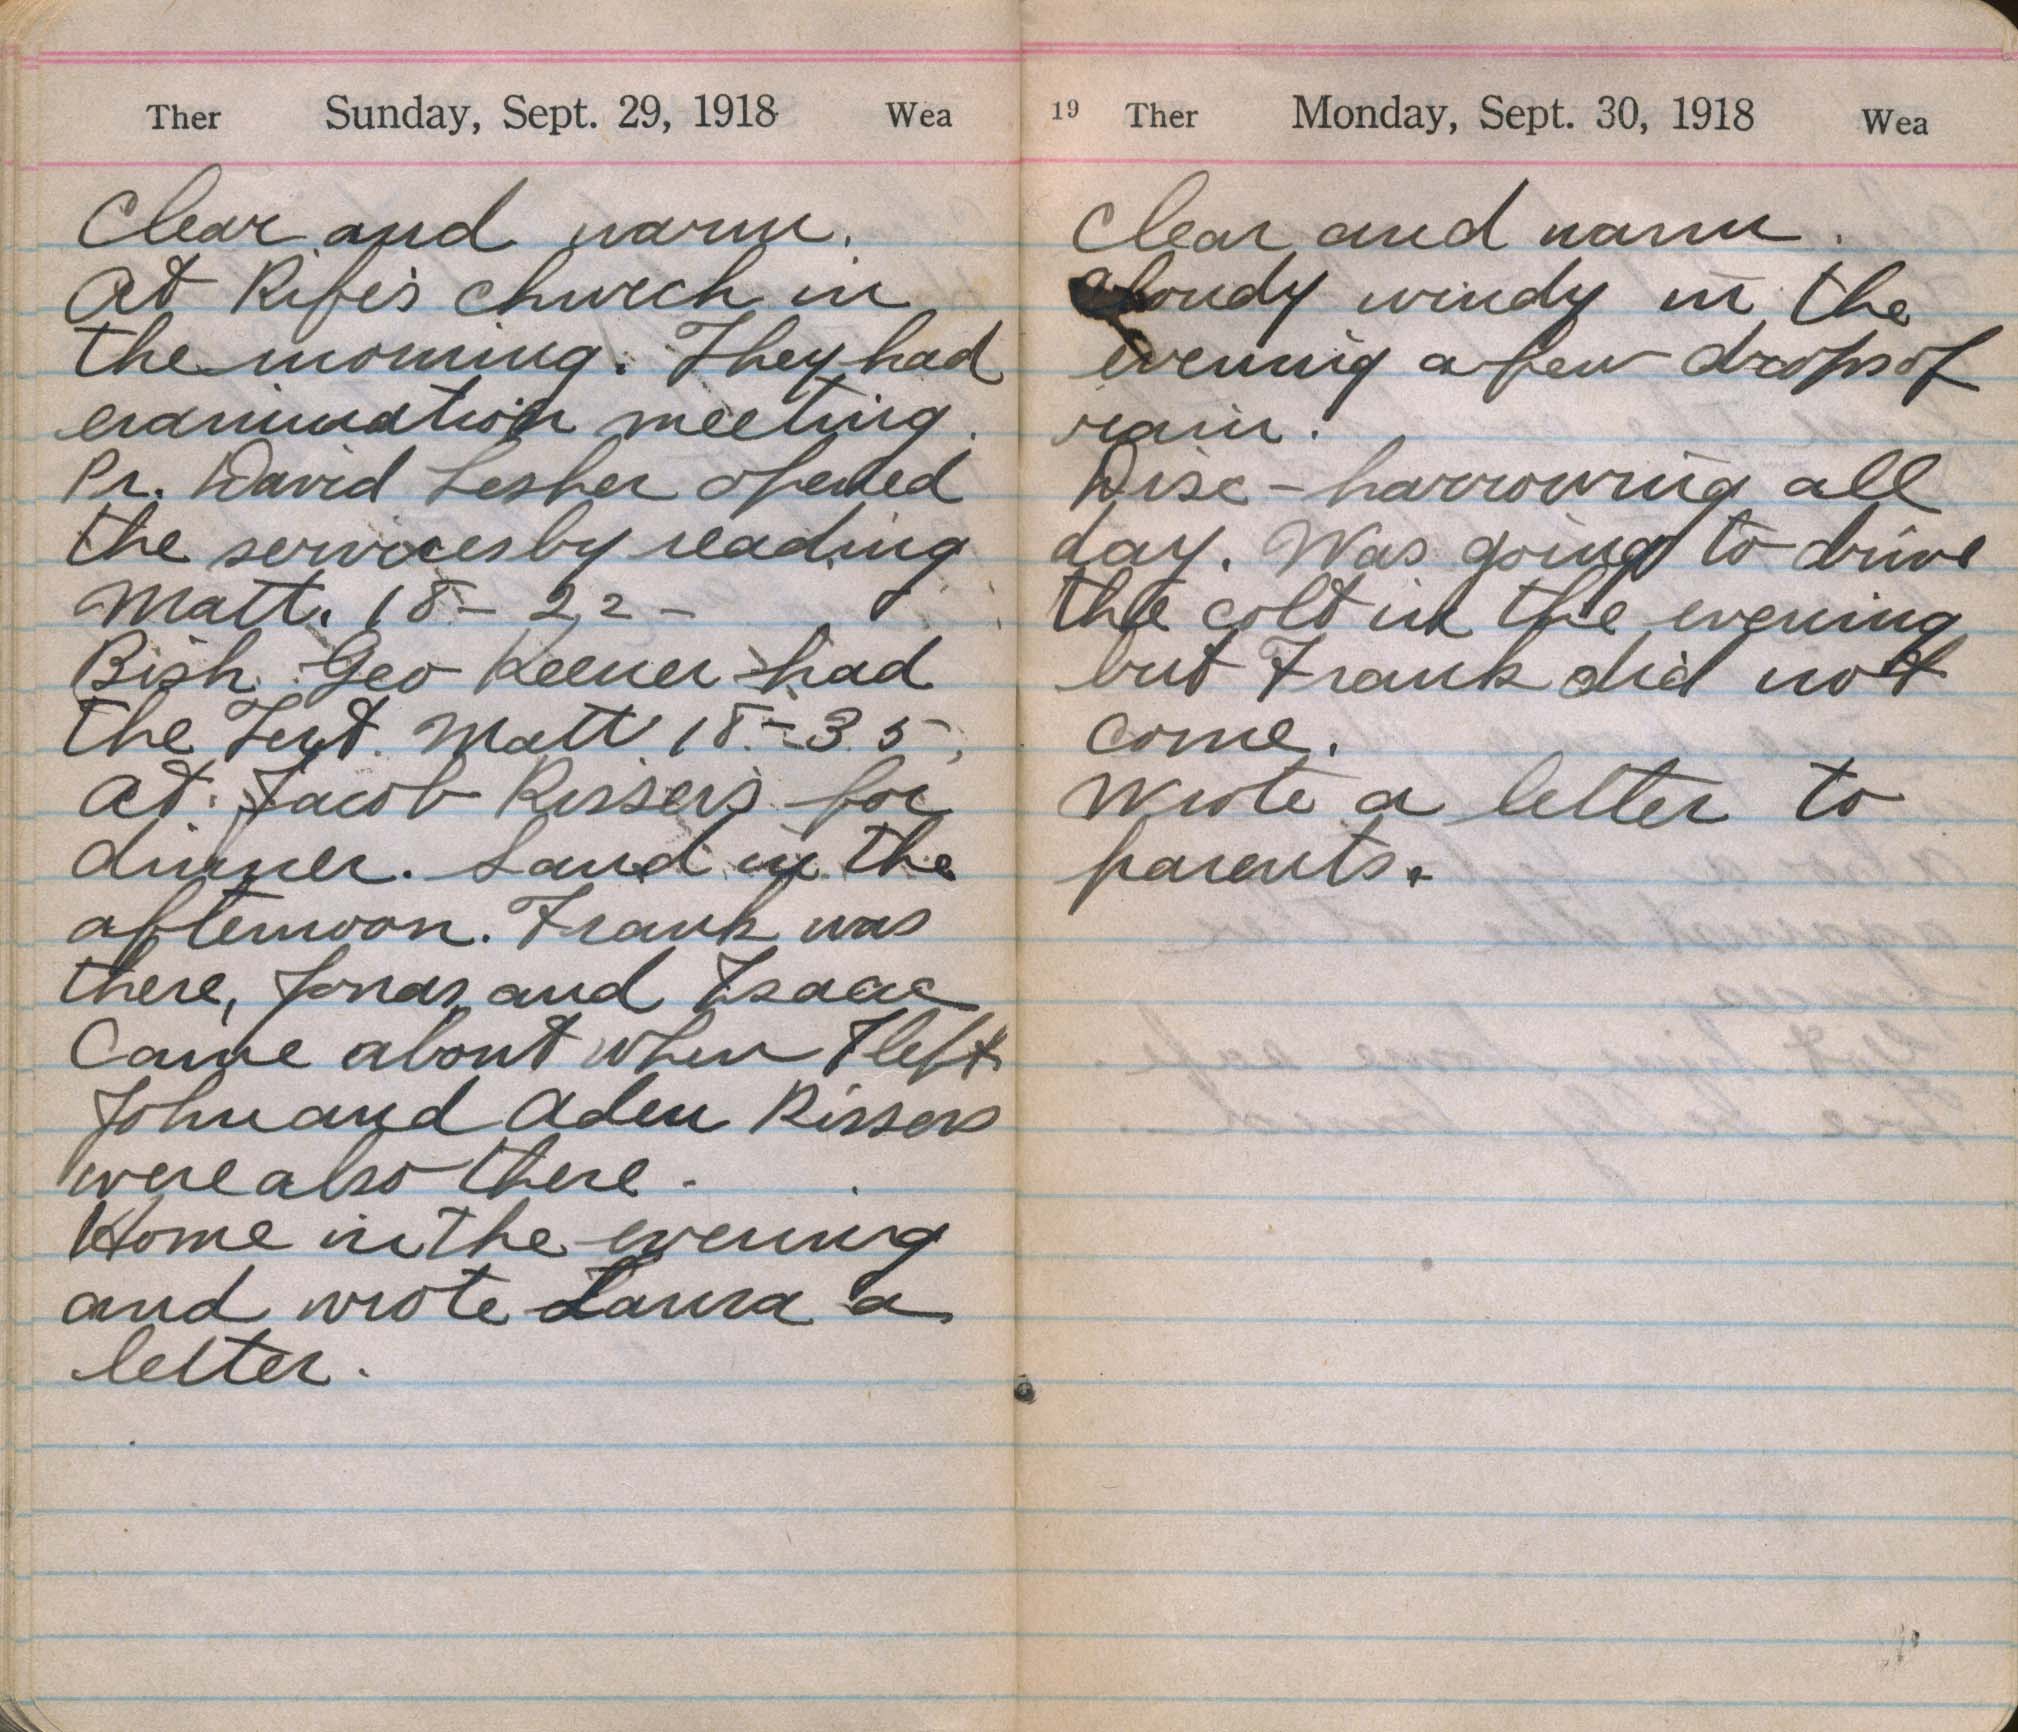 Ther Sunday, Sept. 29, 1918 Wea
Clear and warm.
At Rife's church in
the morning. They had
examination meeting.
Pr. David Lesher opened
the services by reading
Matt. 18-22-
Bish. Geo Keener had
the Text. Matt 18-35,
At Jacob Rissers for
dinner. and in the
afternoon. Frank was
there, Jonas and Isaac
Came about when I left
John and Aden Rissers
were also there.
Home in the evening
and wrote Laura a
letter.
19 Ther Monday, Sept. 30, 1918 Wea
Clear and warm.
Cloudy windy in the
evening a few drops of
rain.
Disc-harrowing all
day. Was going to drive
the colt in the evening
but Frank did not
come.
Wrote a letter to
parents.